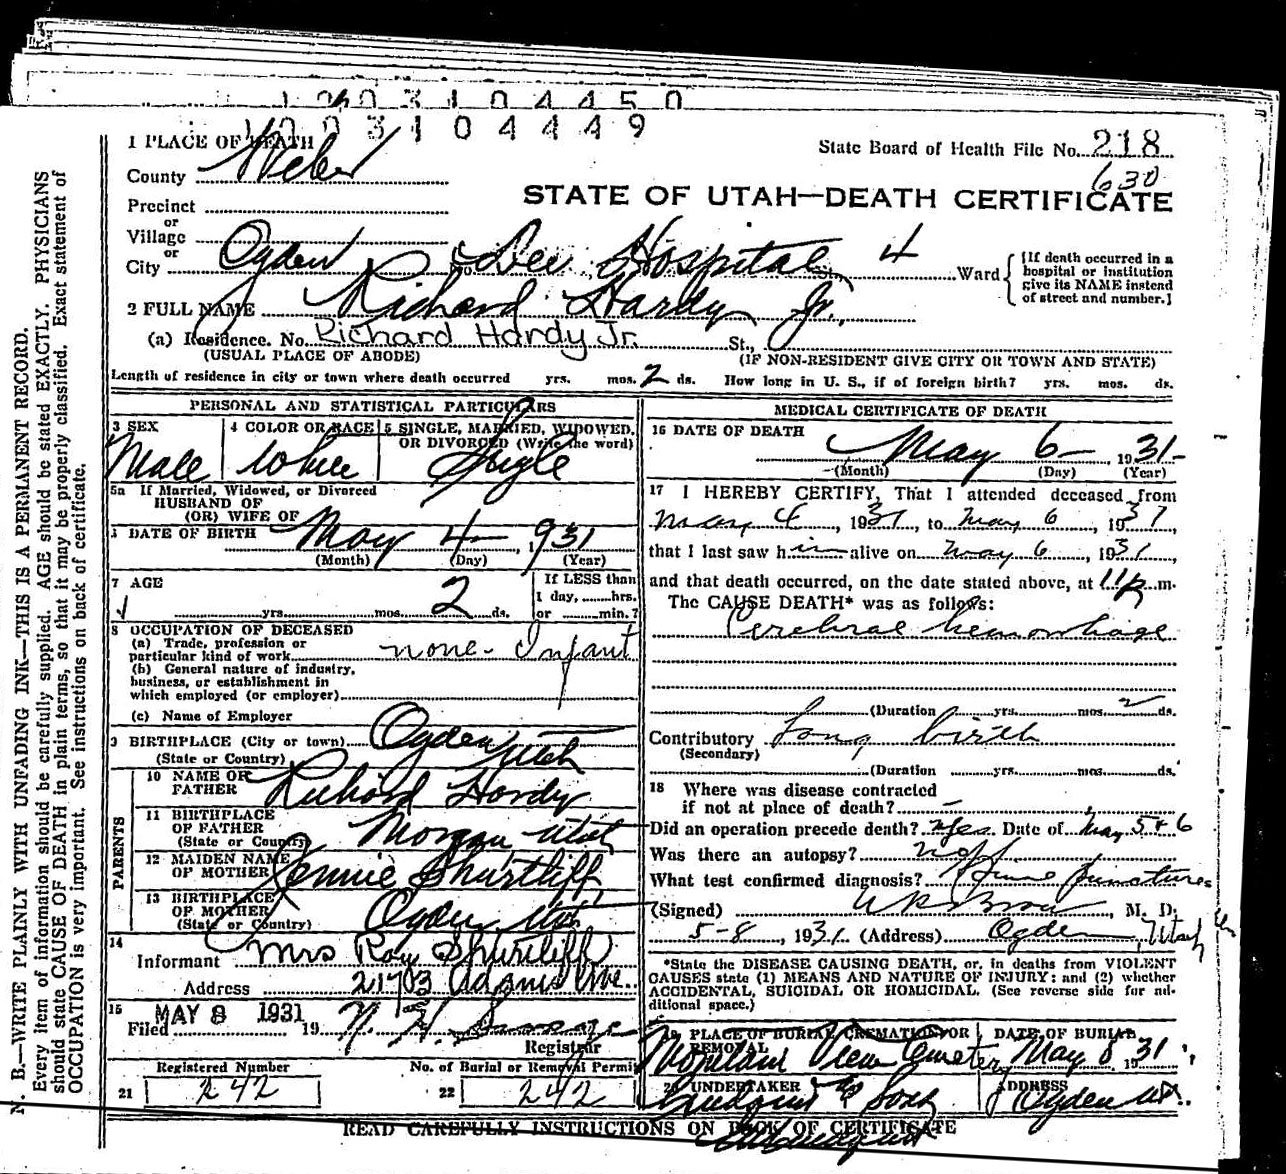 1003104450
1003104449
1 PLACE OF DEATH
State Board of Health File No. 218
County Weber
630
STATE OF UTAH—DEATH CERTIFICATE
Precinct
or
Village
or
City Ogden No. Dee Hospital St., 4 Ward
[If death occurred in a
hospital or institution
give its NAME instead
of street and number.]
2 FULL NAME Richard Hardy Jr.
(a) Residence. No. Richard Hardy Jr. St.,
(USUAL PLACE OF ABODE) (IF NON-RESIDENT GIVE CITY OR TOWN AND STATE)
Length of residence in city or town where death occurred yrs. mos. 2 ds. How long in U. S., if of foreign birth? yrs. mos. ds.
PERSONAL AND STATISTICAL PARTICULARS
3 SEX
Male
4 COLOR OR RACE
White
5 SINGLE, MARRIED, WIDOWED,
OR DIVORCED (Write the word)
Single
5a If Married, Widowed, or Divorced
HUSBAND OF
(OR) WIFE OF
DATE OF BIRTH May 4 1931
(Month) (Day) (Year)
7 AGE
yrs. mos. 2 ds.
If LESS than
1 day, hrs.
or min.?
8 OCCUPATION OF DECEASED
(a) Trade, profession or
particular kind of work none - Infant
(b) General nature of industry,
business, or establishment in
which employed (or employer)
(c) Name of Employer
9 BIRTHPLACE (City or town) Ogden Utah
(State or Country)
PARENTS
10 NAME OF
FATHER Richard Hardy
11 BIRTHPLACE
OF FATHER Morgan Utah
(State or Country)
12 MAIDEN NAME
OF MOTHER Jennie Shurtliff
13 BIRTHPLACE
OF MOTHER Ogden Utah
(State or Country)
14
Informant Mrs Roy Shurtliff
Address 21703 Adams Ave.
15
Filed MAY 8 1931 19
Registrar
Registered Number
21 242
No. of Burial or Removal Permit
22 242
MEDICAL CERTIFICATE OF DEATH
16 DATE OF DEATH
May 6 1931
(Month) (Day) (Year)
17 I HEREBY CERTIFY, That I attended deceased from
May 4, 1931, to May 6, 1931
that I last saw him alive on May 6, 1931
and that death occurred, on the date stated above, at 11 p m.
The CAUSE DEATH* was as follows:
Cerebral hemorrhage
(Duration yrs. mos. 2 ds.
Contributory Long birth
(Secondary)
(Duration yrs. mos. ds.
18 Where was disease contracted
if not at place of death? –
Did an operation precede death? yes. Date of May 5 + 6
Was there an autopsy? no
What test confirmed diagnosis? Spine punctures
(Signed) , M. D.
5-8, 1931 (Address) Ogden, Utah
*State the DISEASE CAUSING DEATH, or, in deaths from VIOLENT
CAUSES state (1) MEANS AND NATURE OF INJURY; and (2) whether
ACCIDENTAL, SUICIDAL OR HOMICIDAL. (See reverse side for ad-
ditional space.)
19 PLACE OF BURIAL, CREMATION OR
REMOVAL
Mountain View Cemetery
DATE OF BURIAL
May 8 1931
20 UNDERTAKER
Lindquist & Sons
ADDRESS
Ogden Ut.
READ CAREFULLY INSTRUCTIONS ON BACK OF CERTIFICATE
N. B.—WRITE PLAINLY WITH UNFADING INK—THIS IS A PERMANENT RECORD.
Every item of information should be carefully supplied. AGE should be stated EXACTLY. PHYSICIANS
should state CAUSE OF DEATH in plain terms, so that it may be properly classified. Exact statement of
OCCUPATION is very important. See instructions on back of certificate.